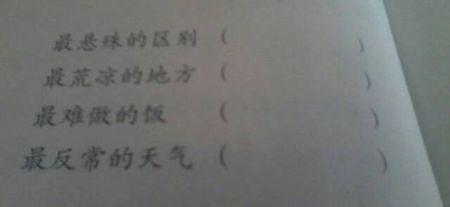 最悬殊的区别（ ）
最荒凉的地方（ ）
最难做的饭（ ）
最反常的天气（ ）